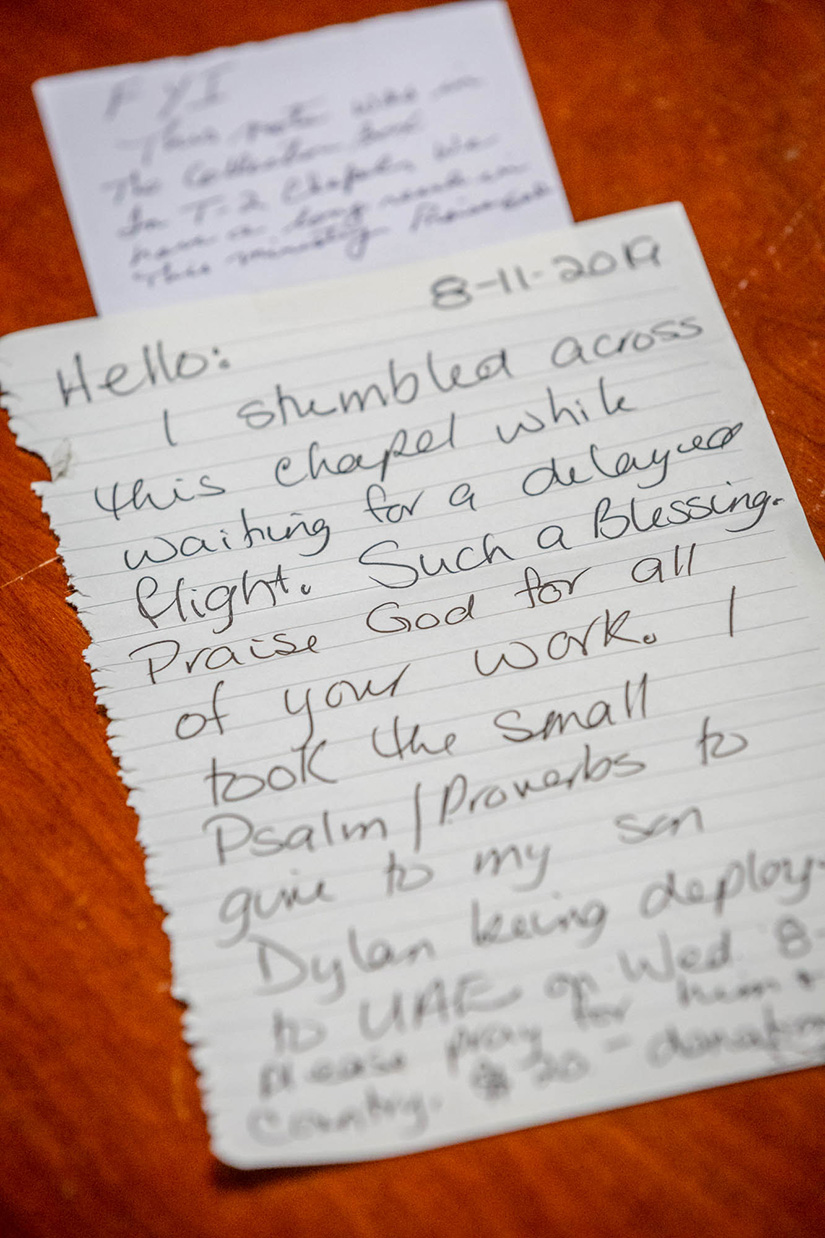 FYI
This note was in
The Collection box
In T-2 Chapel, We
have a long reach in
This ministry Praise God
8-11-2019
Hello:
I stumbled across
this chapel while
waiting for a delayed
flight. Such a Blessing.
Praise God for all
of your work. I
took the small
Psalm/Proverbs to
give to my son
Dylan being deploy-
to UAE on Wed 8-
please pray for him +
Country. $20 - donation